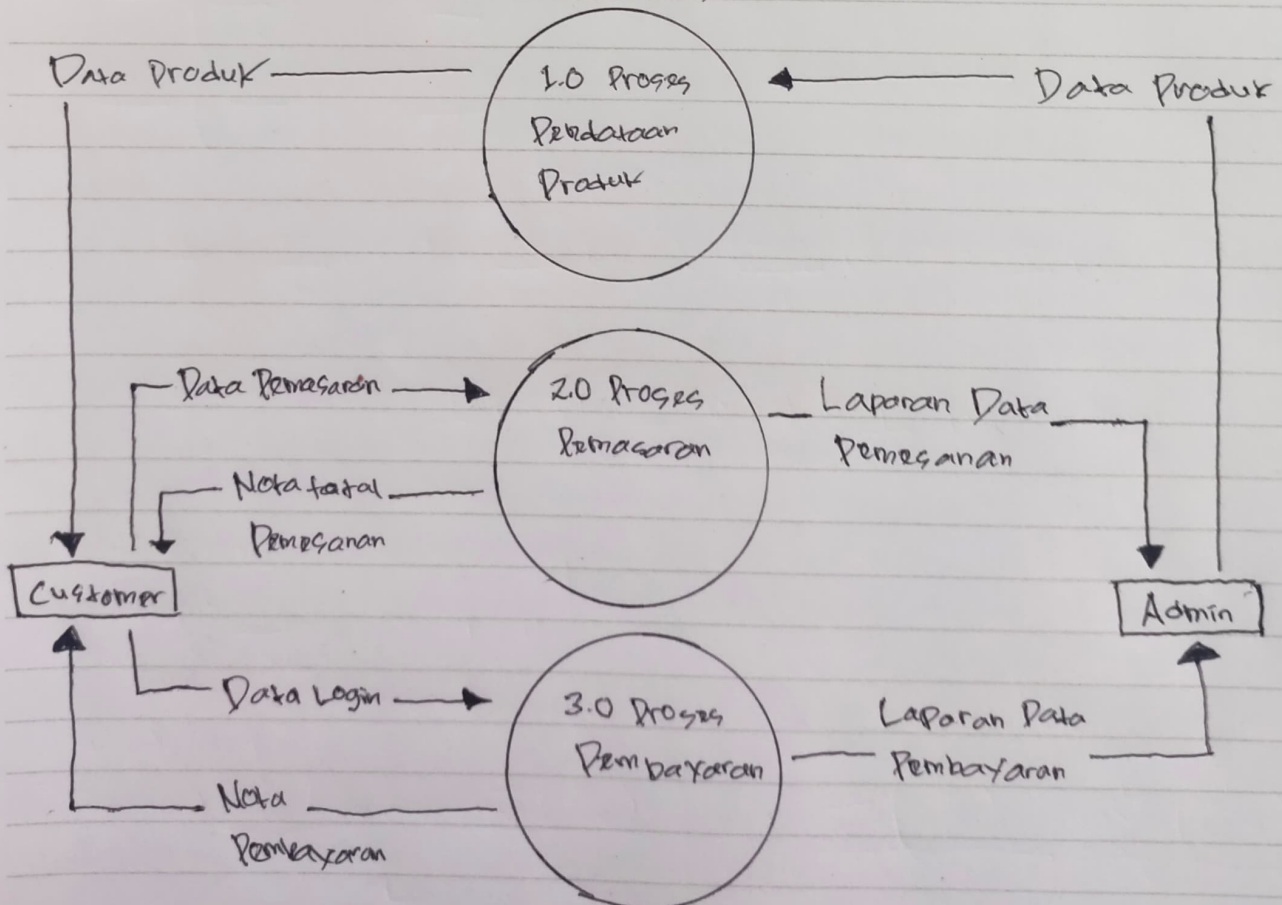 Data Produk
1.0 Proses
Pendataan
Produk
Data Produk
Data Pemasaran
2.0 Proses
Pemasaran
Laporan Data
Pemesanan
Nota total
Pemesanan
Customer
Admin
Data Login
3.0 Proses
Pembayaran
Laporan Data
Pembayaran
Nota
Pembayaran